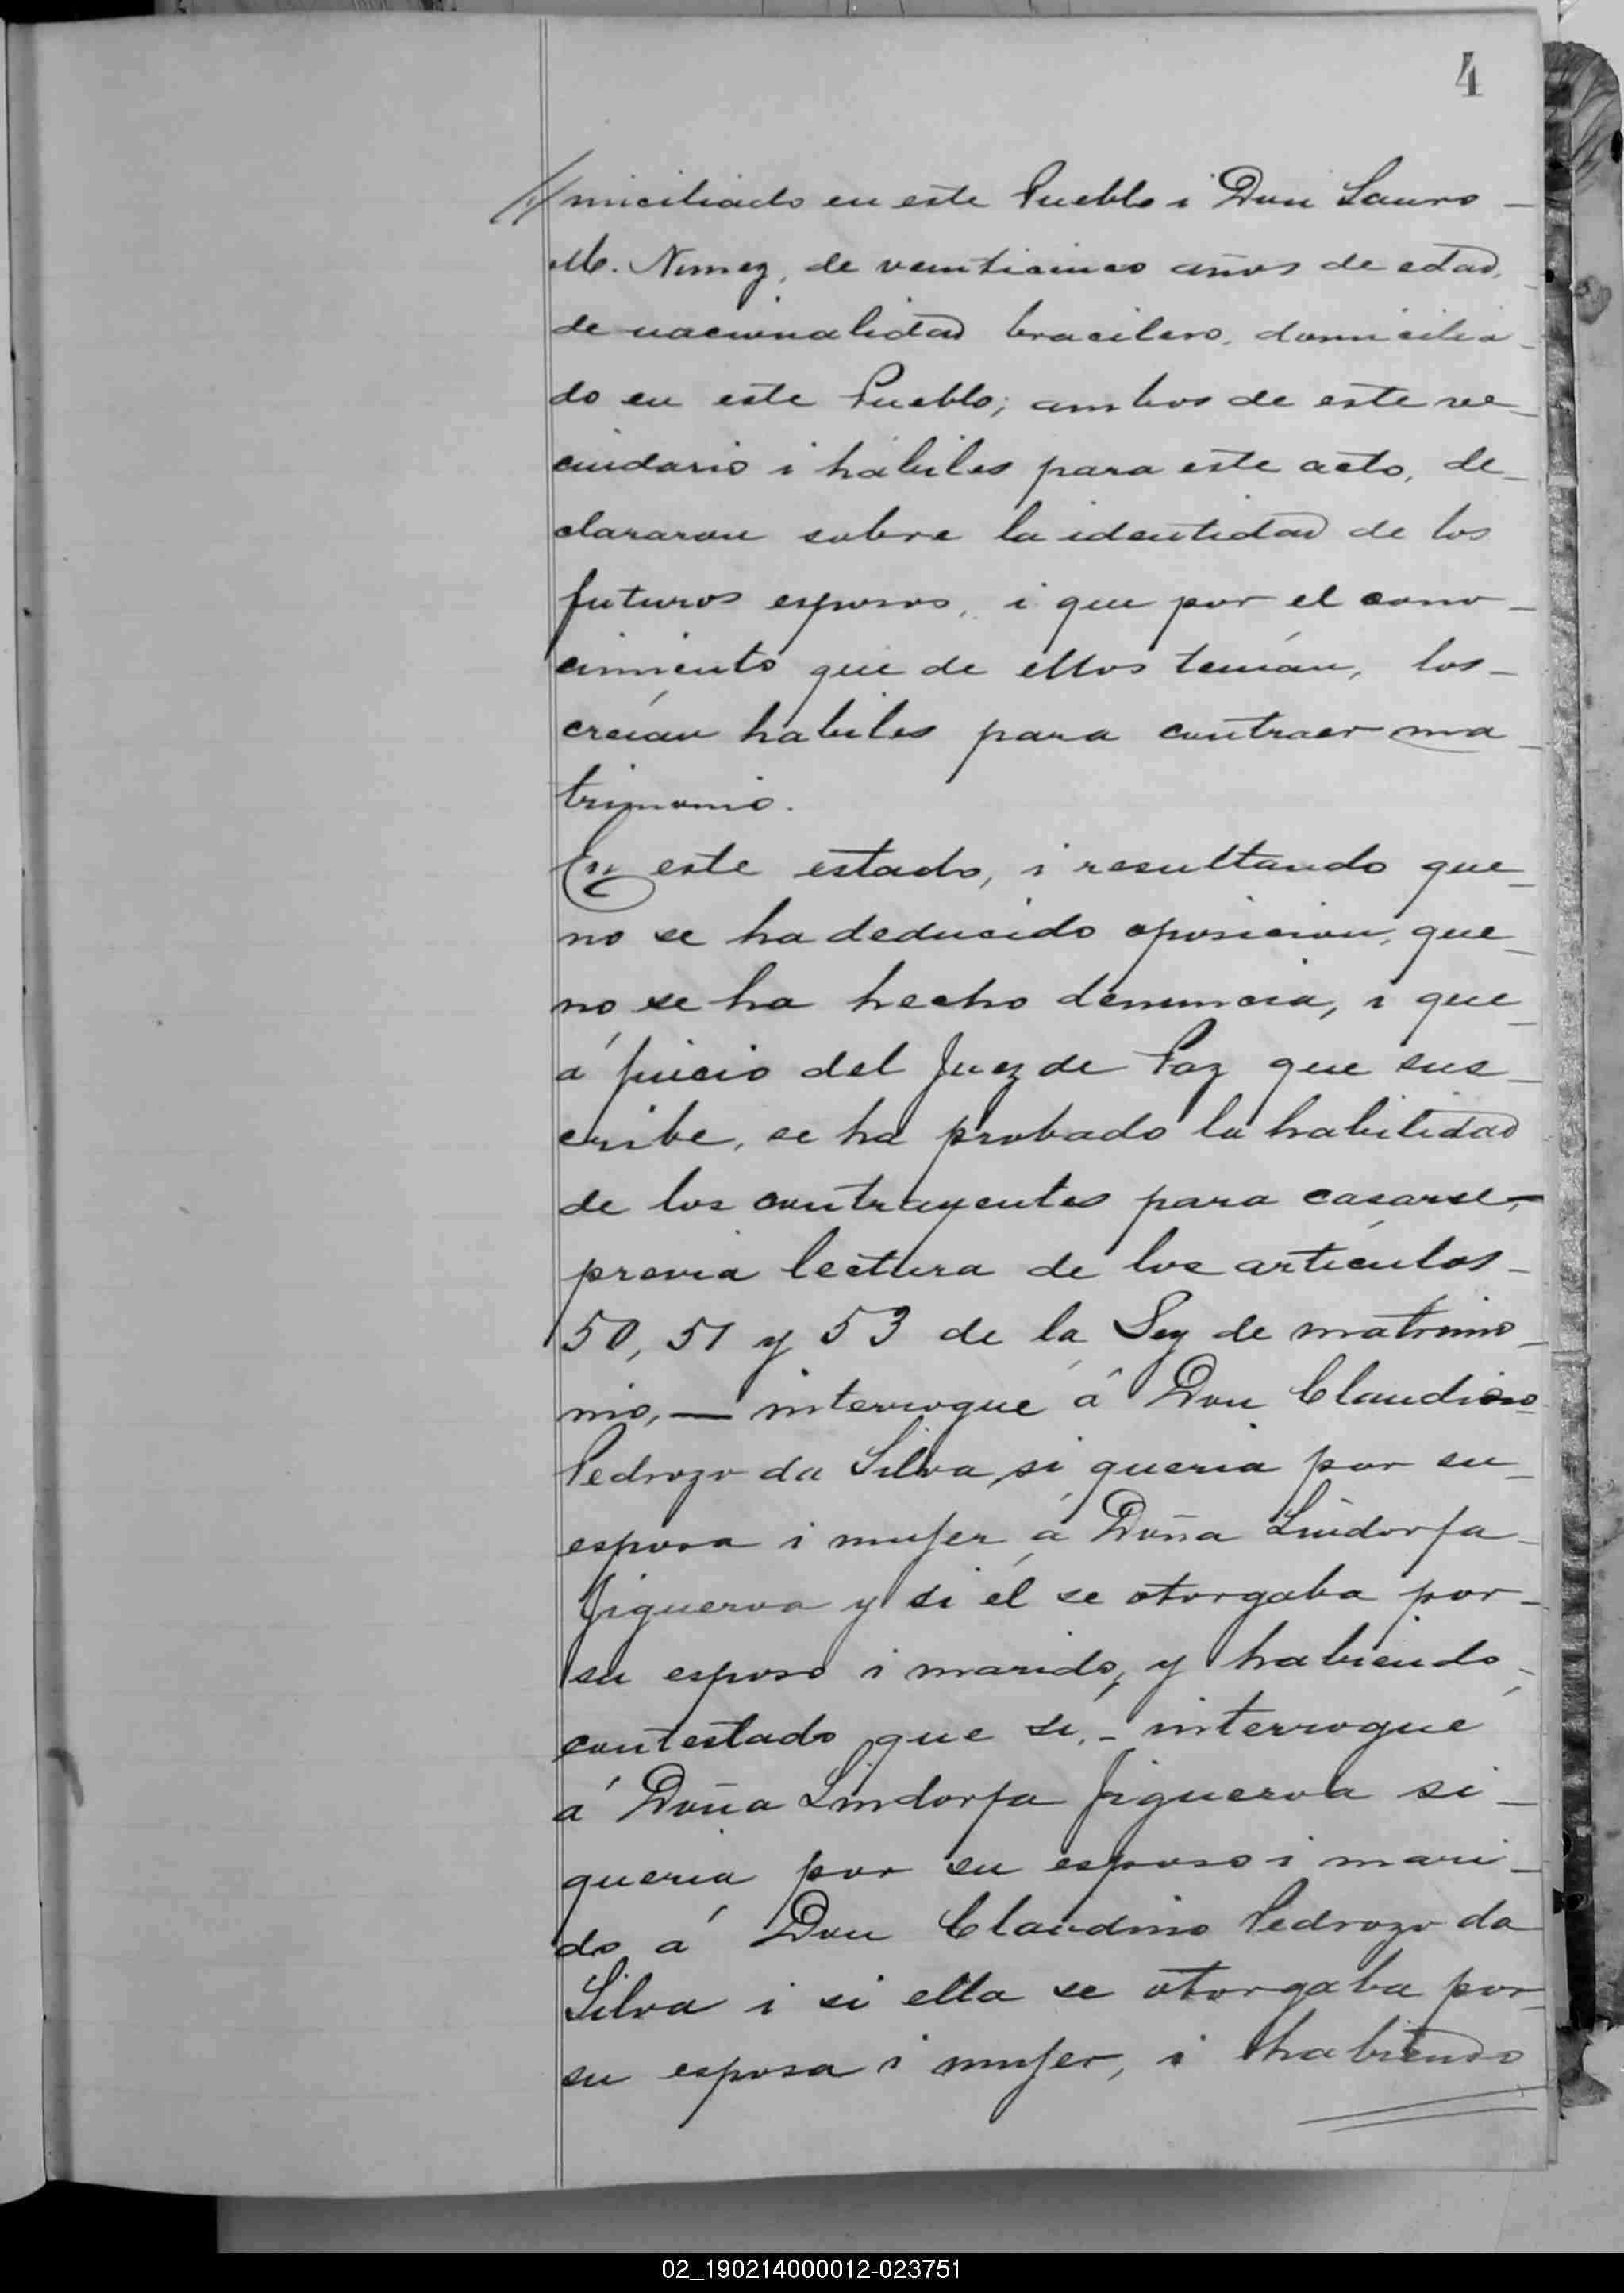 4
//miciliado en este Pueblo i Don Lauro -
M. Nunez, de veinticinco años de edad,
de nacionalidad bracilero, domicilia-
do en este Pueblo; ambos de este ve-
cindario i hábiles para este acto, de-
clararon sobre la identidad de los
futuros esposos, i que por el cono-
cimiento que de ellos tenían, los -
creían habiles para contraer ma-
trimonio.
En este estado, i resultando que -
no se ha deducido oposicion, que -
no se ha hecho denuncia, i que -
á juicio del Juez de Paz que sus-
cribe, se ha probado la habilidad
de los contrayentes para casarse, -
previa lectura de los artículos -
50, 51 y 53 de la Ley de matrimo-
nio, — interrogué á Don Claudino
Pedrozo da Silva si quería por su -
esposa i mujer á Doña Lindorfa -
Figueroa y si él se otorgaba por -
su esposo i marido, y habiendo -
contestado que si, - interrogué
á Doña Lindorfa Figueroa si -
queria por su esposo i mari-
do á Don Claudino Pedrozo da
Silva i si ella se otorgaba por
su esposa i mujer, i habiendo
02_190214000012-023751